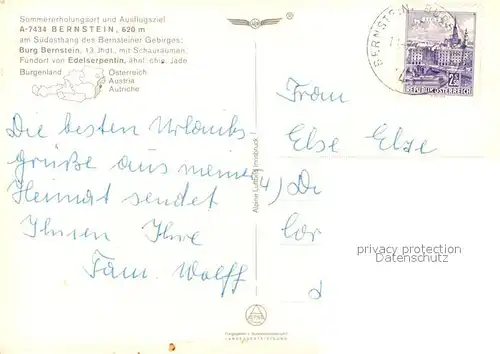 Sommererholungsort und Ausflugsziel
A-7434 BERNSTEIN, 620 m
am Südosthang des Bernsteiner Gebirges;
Burg Bernstein, 13. Jhdt., mit Schauräumen.
Fundort von Edelserpentin, ähnl. chin. Jade
Burgenland
Österreich
Austria
Autriche
Die besten Urlaubs
grüße aus meiner
Heimat sendet
Ihnen Ihre
Fam. Wolff
Alpine Luftbild Innsbruck
BERNSTEIN
2.50
REPUBLIK ÖSTERREICH
Frau
Else
privacy protection
Datenschutz